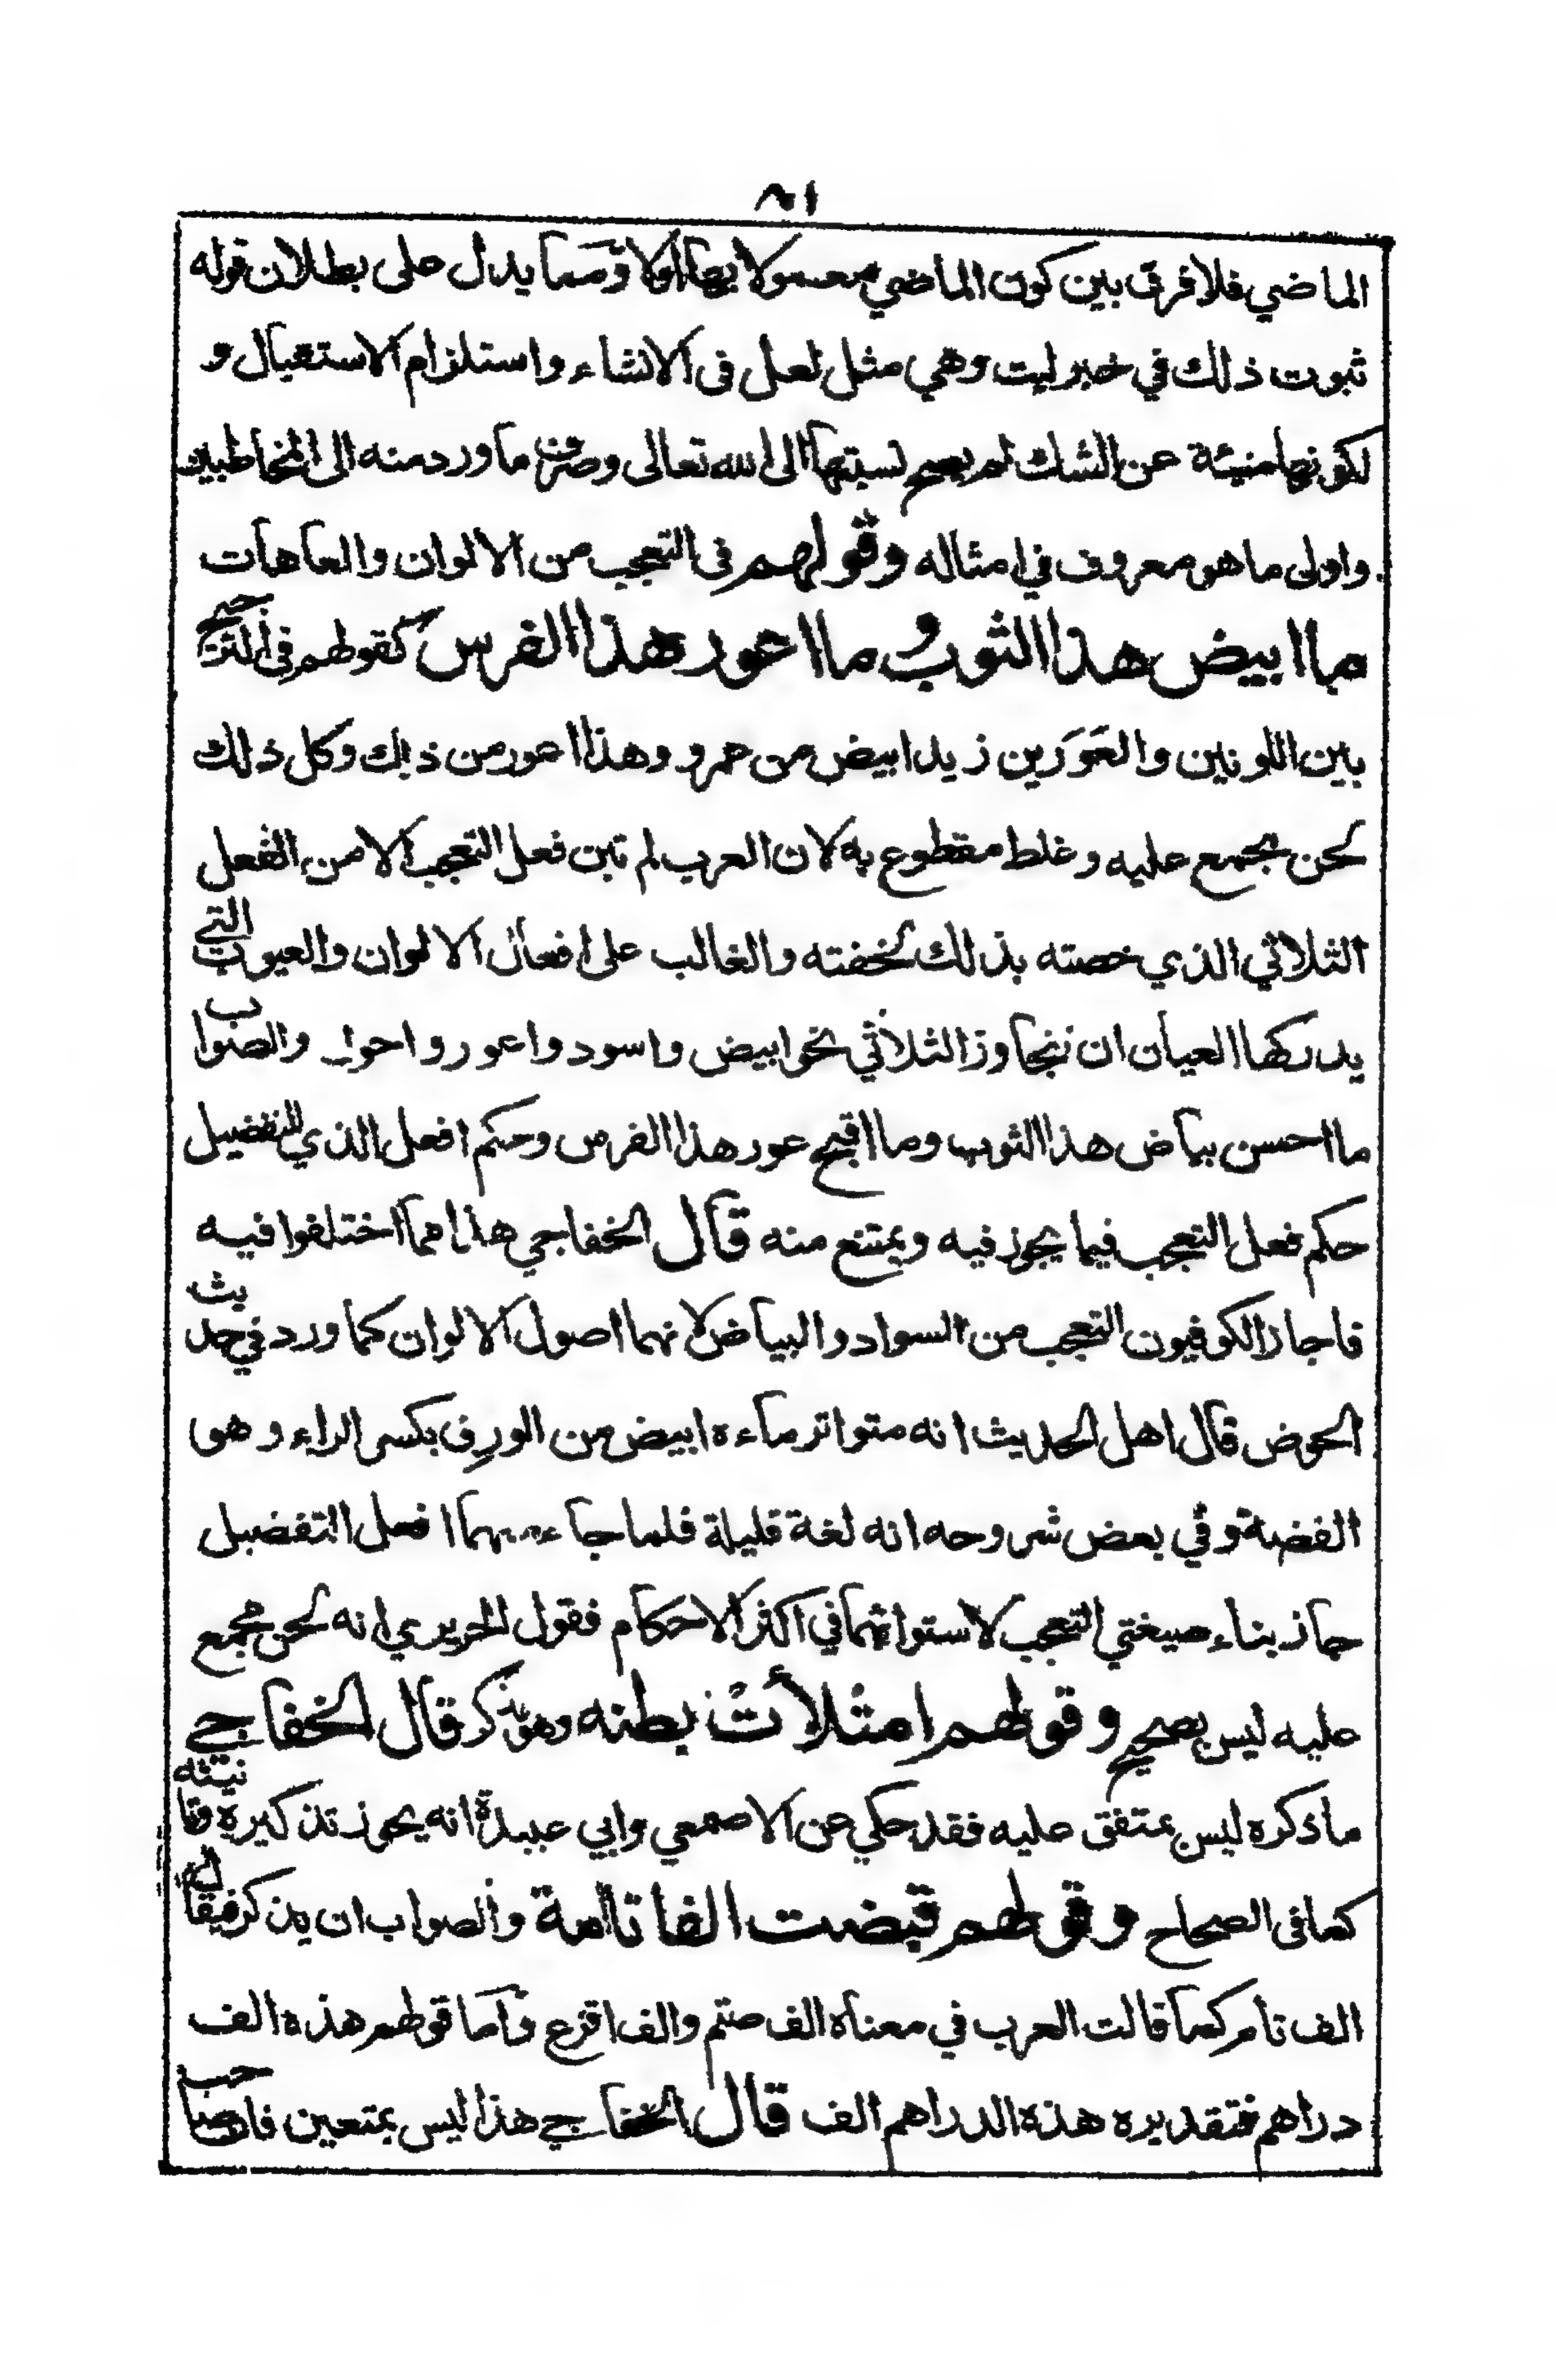 ١٨
الماضي فلا فرق بين كون الماضي معمولا بها اولا ومما يدل على بطلان قوله
ثبوت ذلك في خبر ليت وهي مثل لعل فى الانشاء واستلزام الاستقبال و
لكونها منبئة عن الشك لم يصح نسبتها الى الله تعالى وصرف ما ورد منه الى المخاطبين
واولى ما هو معروف في امثاله وقولهم فى التعجب من الالوان والعاهات
ما ابيض هذا الثوب وما اعور هذا الفرس كقولهم فى الترجيح
بين اللونين والعَوَرين زيد ابيض من عمرو وهذا اعور من ذلك وكل ذلك
لحن مجمع عليه وغلط مقطوع به لان العرب لم تبن فعل التعجب الا من الفعل
الثلاثي الذي خصته بذلك لخفته والغالب على افعال الالوان والعيوب التي
يدركها العيان ان تتجاوز الثلاثي نحو ابيض واسود واعور واحول والصواب
ما احسن بياض هذا الثوب وما اقبح عور هذا الفرس وحكم افعل الذي للتفضيل
حكم فعل التعجب فيما يجوز فيه ويمتنع منه قال الخفاجي هذا مما اختلفوا فيه
فاجاز الكوفيون التعجب من السواد والبياض لانهما اصول الالوان كما ورد في حديث
الحوض قال اهل الحديث انه متواتر ماءه ابيض من الورِق بكسر الراء وهو
الفضة وفي بعض شروحه انه لغة قليلة فلما جاء منهما افعل التفضيل
جاز بناء صيغتي التعجب لاستوائهما في اكثر الاحكام فقول الحريري انه لحن مجمع
عليه ليس بصحيح وقولهم امتلأتْ بطنه وهو مذكر قال الخفاجي
ما ذكره ليس بمتفق عليه فقد حكي عن الاصمعي وابي عبيدة انه يجوز تذكيره وتانيثه
كما فى الصحاح وقولهم قبضت الفا تامة والصواب ان يذكر فيقال
الف تام كما قالت العرب في معناه الف صتم والف اقرع واما قولهم هذه الف
دراهم فتقديره هذه الدراهم الف قال الخفاجي هذا ليس بمتعين فان صاحب